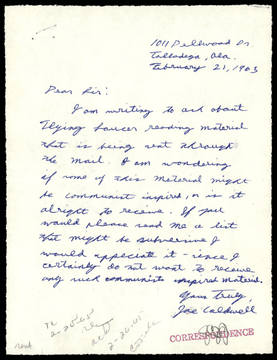 1011 Dellwood Dr.
Talladega, Ala.
February 21, 1963
Dear Sir:
I am writing to ask about
Flying Saucer reading material
that is being sent through
the mail. I am wondering
if some of this material might
be communist inspired, or is it
alright to receive. If you
would please send me a list
that might be subversive I
would appreciate it - since I
certainly do not want to receive
any such communist inspired material.
Yours Truly,
Joe Caldwell
CORRESPONDENCE